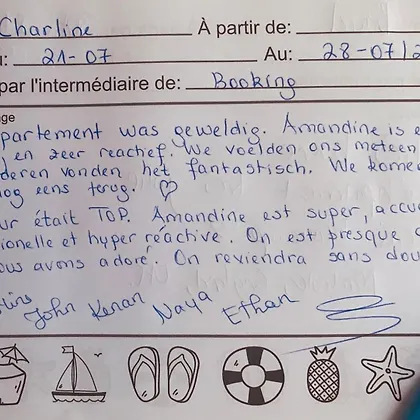 Charline À partir de:
21-07 Au: 28-07/2
par l'intermédiaire de: Booking
partement was geweldig. Amandine is
en zeer reactief. We voelden ons meteen
deren vonden het fantastisch. We komen
og eens terug. ♡
ur était TOP. Amandine est super, accu
ionelle et hyper réactive. On est presque
ous avons adoré. On reviendra sans dou
John Kenan Naya Ethan